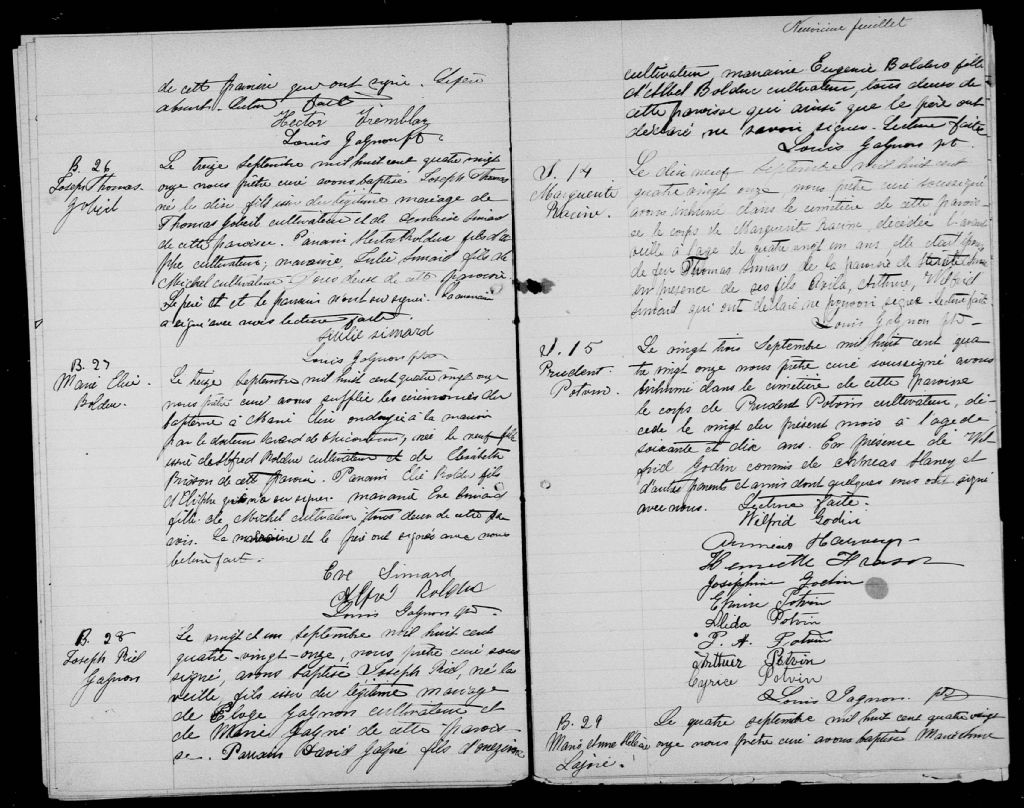 de cette paroisse qui ont signé. Le père
absent. Lecture faite
Hector Tremblay
Louis Gagnon ptr
B. 26
Joseph Thomas
Gobeil
Le treize septembre mil huit cent quatre vingt
onze nous prêtre curé avons baptisé Joseph Thomas
né le dix fils issu du légitime mariage de
Thomas Gobeil cultivateur et de Simard
de cette paroisse. Parrain Hector Bolduc fils d'
cultivateur, marraine Julie Simard fille de
Michel cultivateur tous deux de cette paroisse.
Le père et le parrain n'ont su signer. La marraine
a signé avec nous lecture faite.
Julie Simard
Louis Gagnon ptr
B. 27
Marie Elié
Bolduc.
Le treize septembre mil huit cent quatre vingt onze
nous prêtre curé avons supplée les cérémonies du
baptême à Marie Elié ondoyée à la maison
par le docteur de Chicoutimi, née le neuf fille
issue de Alfred Bolduc cultivateur et de Elisabeth
Brisson de cette paroisse. Parrain Elié Bolduc fils
d'Elzéphe qui n'a su signer. marraine Eve Simard
fille de Michel cultivateur tous deux de cette pa
rois. La marraine et le père ont signés avec nous
lecture fait.
Eve Simard
Alfred Bolduc
Louis Gagnon ptr
B. 28
Joseph Riel
Gagnon
Le vingt et un septembre mil huit cent
quatre-vingt-onze, nous prêtre curé sous
signé, avons baptisé Joseph Riel, né la
veille, fils issu du légitime mariage
de Eloge Gagnon cultivateur et
de Marie Gagné de cette parois-
se. Parrain David Gagné fils d'onezime
Neuvième feuillet
cultivateur, marraine Eugenie Bolduc fille
d'Abel Bolduc cultivateur, tous deux de
cette paroisse qui ainsi que le père ont
déclaré ne savoir signer. Lecture faite
Louis Gagnon pt.
S. 14
Marguerite
Racine.
Le dix neuf septembre mil huit cent
quatre vingt onze, nous prêtre curé soussigné
avons inhumé dans le cimetière de cette parois-
se le corps de Marguerite Racine, décédée l'avant
veille à l'age de quatre vingt un ans, elle était épouse
de feu Thomas Simard de la paroisse de
en présence de ses fils Avila, Arthur, Wilfrid
Simard qui ont déclaré ne pouvoir signer. Lecture faite
Louis Gagnon ptr-
S. 15
Prudent
Potvin.
Le vingt trois Septembre mil huit cent qua
tre vingt onze nous prêtre curé soussigné avons
inhumé dans le cimetière de cette paroisse
le corps de Prudent Potvin cultivateur, dé-
cédé le vingt du présent mois à l'age de
soixante et dix ans. En présence de Wil
frid Godin commis de
d'autres parents et amis dont quelques uns ont signé
avec nous. Lecture faite.
Wilfrid Godin
Harvey
Henriette
Josephine Godin
Potvin
Alida Potvin
P. A. Potvin
Arthur Potvin
Cyrice Potvin
Louis Gagnon ptr
B. 29
Marie Anne
Lajoie.
Le quatre septembre mil huit cent quatre vingt
onze nous prêtre curé avons baptisé Marie Anne